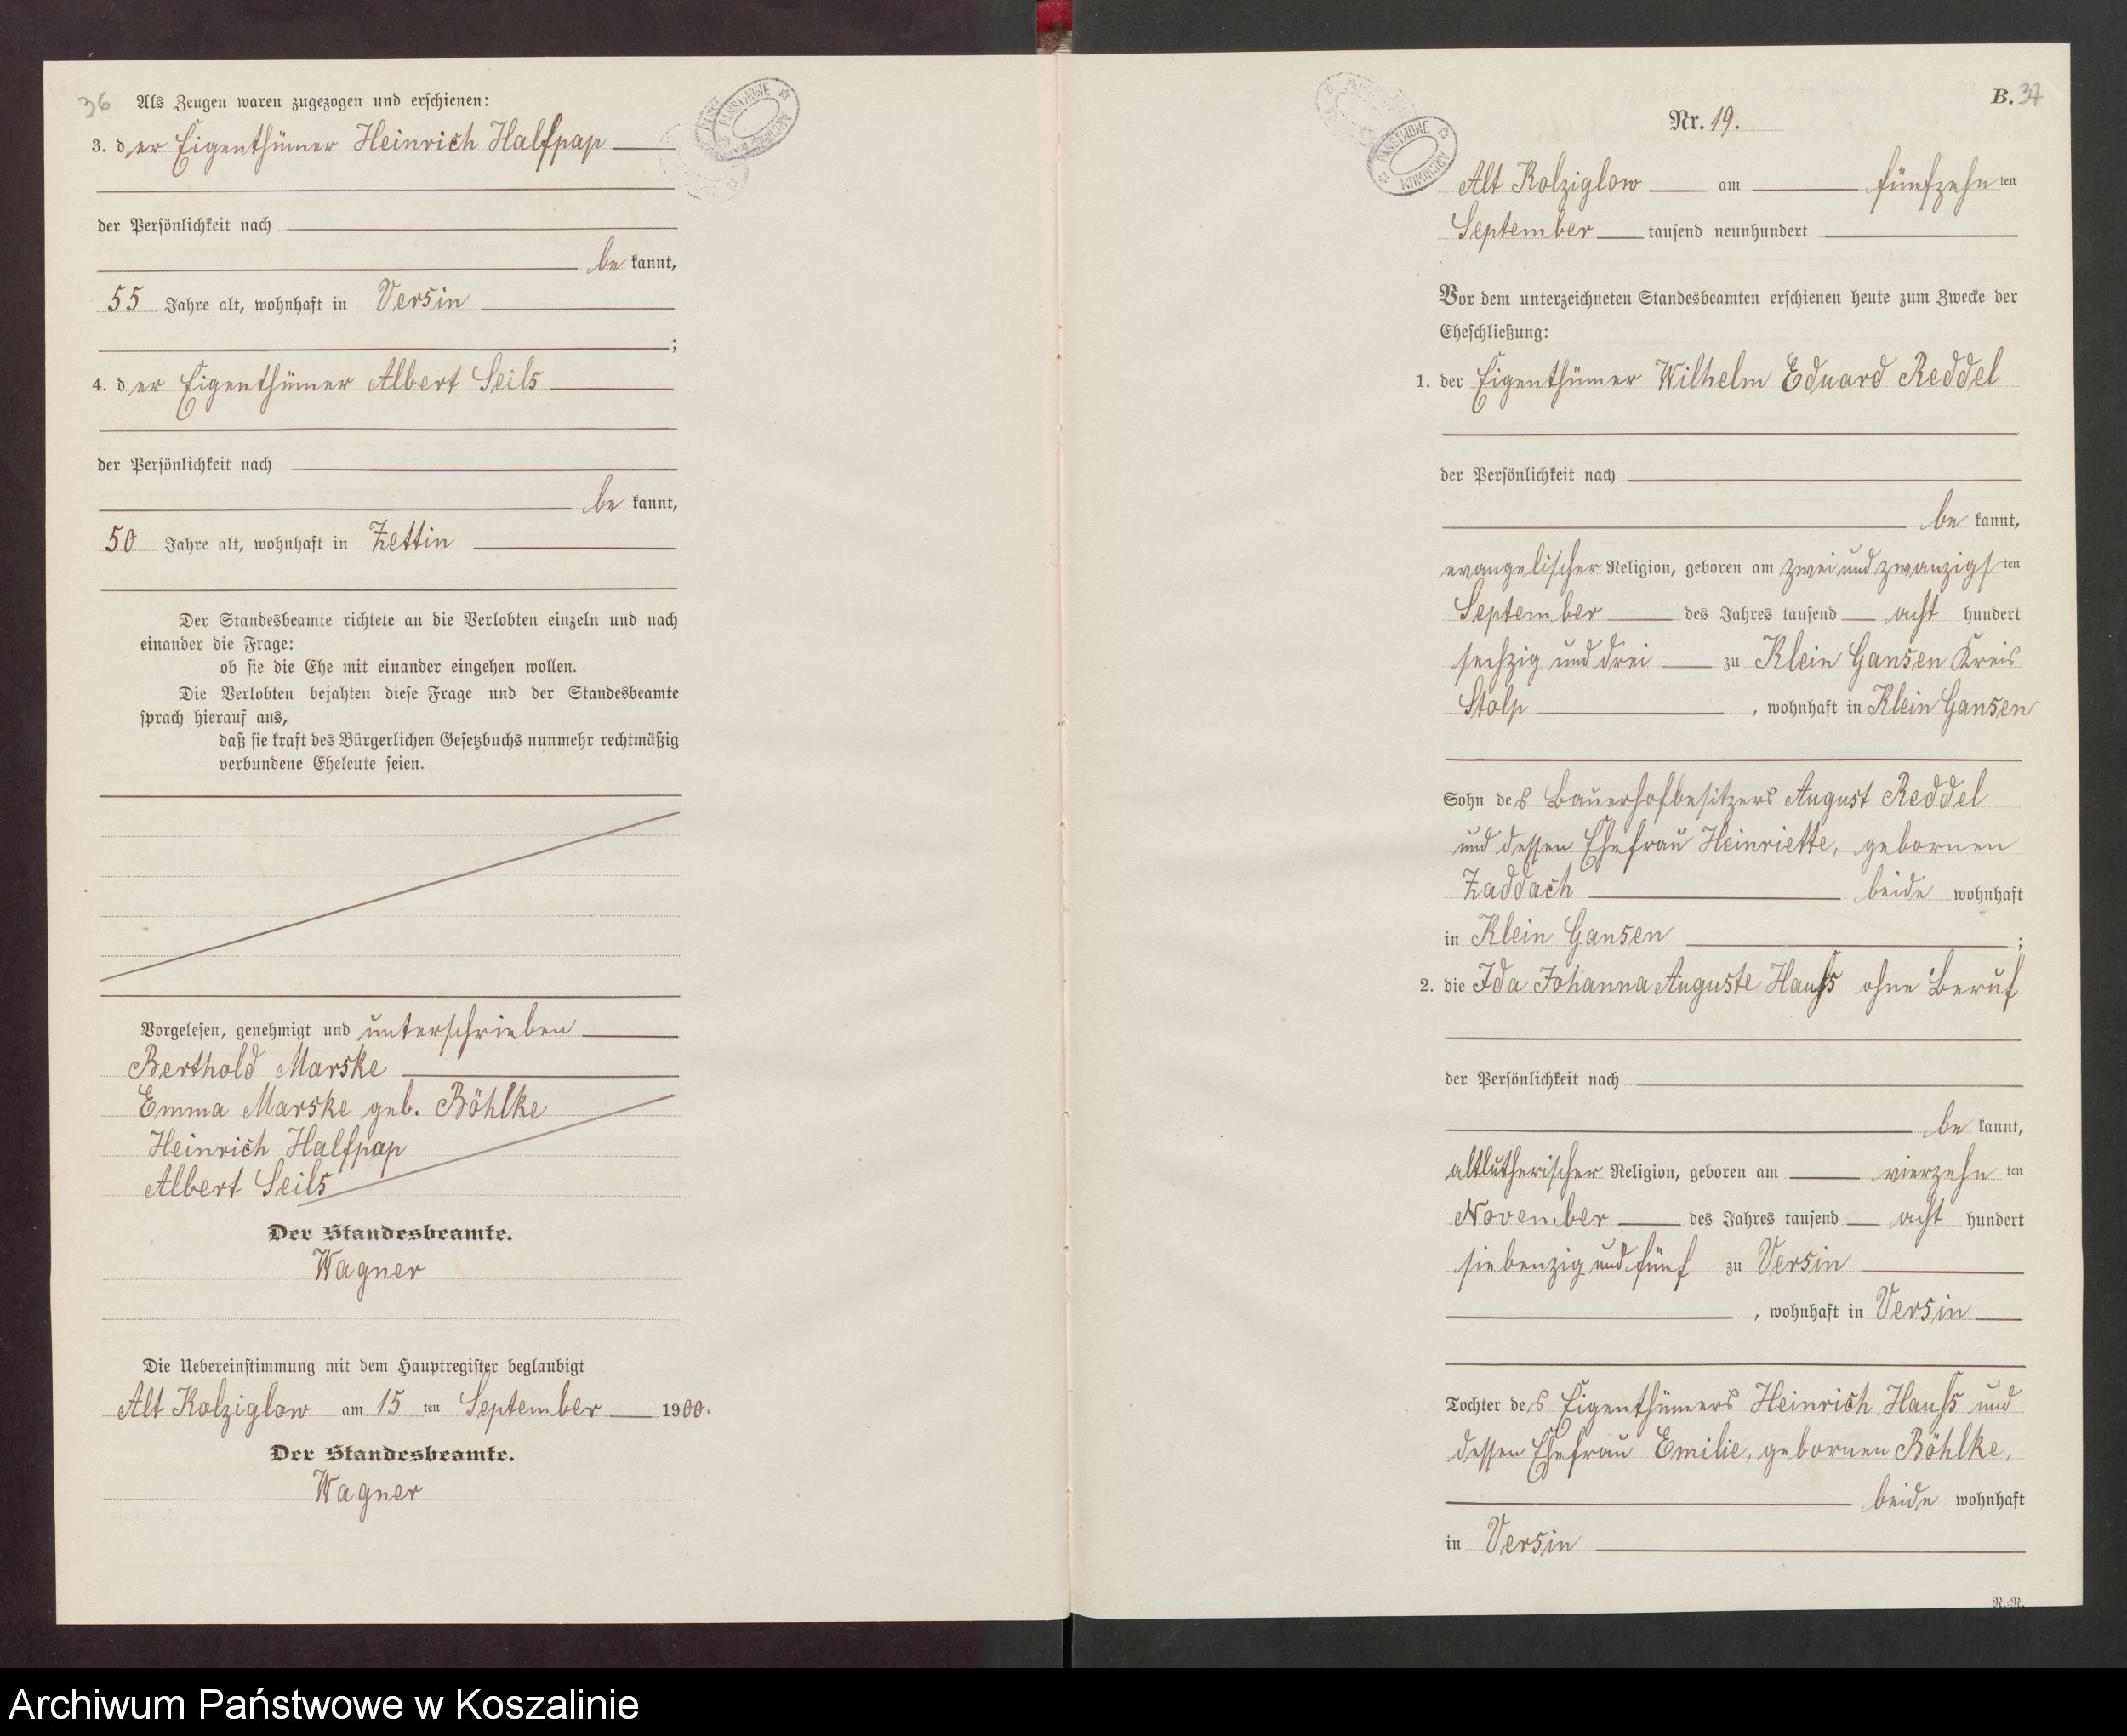 36
Als Zeugen waren zugezogen und erschienen:
3. der Eigenthümer Heinrich Halfpap
der Persönlichkeit nach
be kannt,
55 Jahre alt, wohnhaft in Versin
;
4. der Eigenthümer Albert Seils
der Persönlichkeit nach
be kannt,
50 Jahre alt, wohnhaft in Zettin
Der Standesbeamte richtete an die Verlobten einzeln und nach
einander die Frage:
ob sie die Ehe mit einander eingehen wollen.
Die Verlobten bejahten diese Frage und der Standesbeamte
sprach hierauf aus,
daß sie kraft des Bürgerlichen Gesetzbuchs nunmehr rechtmäßig
verbundene Eheleute seien.
Vorgelesen, genehmigt und unterschrieben
Berthold Marske
Emma Marske geb. Böhlke
Heinrich Halfpap
Albert Seils
Der Standesbeamte.
Wagner
Die Uebereinstimmung mit dem Hauptregister beglaubigt
Alt Kolziglow am 15 ten September 1900.
Der Standesbeamte.
Wagner
PAŃSTWOWE ARCHIWUM
B. 37
Nr. 19.
PAŃSTWOWE ARCHIWUM
Alt Kolziglow am fünfzehn ten
September tausend neunhundert
Vor dem unterzeichneten Standesbeamten erschienen heute zum Zwecke der
Eheschließung:
1. der Eigenthümer Wilhelm Eduard Reddel
der Persönlichkeit nach
be kannt,
evangelischer Religion, geboren am zwei und zwanzigs ten
September des Jahres tausend acht hundert
sechzig und drei zu Klein Gansen Kreis
Stolp , wohnhaft in Klein Gansen
Sohn des Bauerhofbesitzers August Reddel
und dessen Ehefrau Heinriette, gebornen
Zaddach beide wohnhaft
in Klein Gansen ;
2. die Ida Johanna Auguste Hanss ohne Beruf
der Persönlichkeit nach
be kannt,
altlutherischer Religion, geboren am vierzehn ten
November des Jahres tausend acht hundert
siebenzig und fünf zu Versin
, wohnhaft in Versin
Tochter des Eigenthümers Heinrich Hanss und
dessen Ehefrau Emilie, gebornen Böhlke,
beide wohnhaft
in Versin
N.-R.
Archiwum Państwowe w Koszalinie